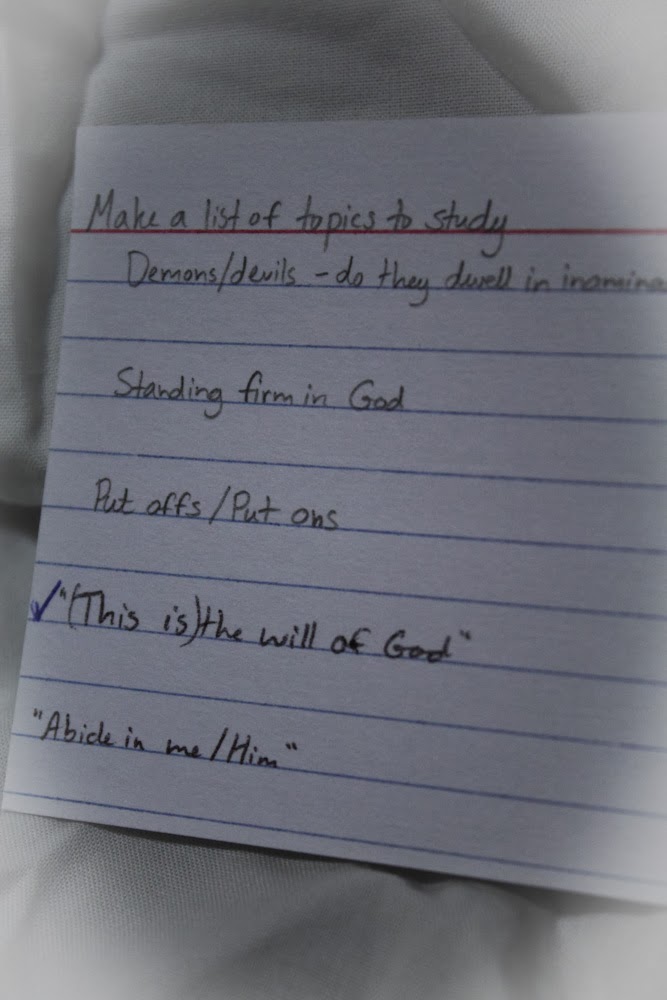 Make a list of topics to study
Demons/devils - do they dwell in
Standing firm in God
Put offs/Put ons
✓"(This is) the will of God"
"Abide in me/Him"